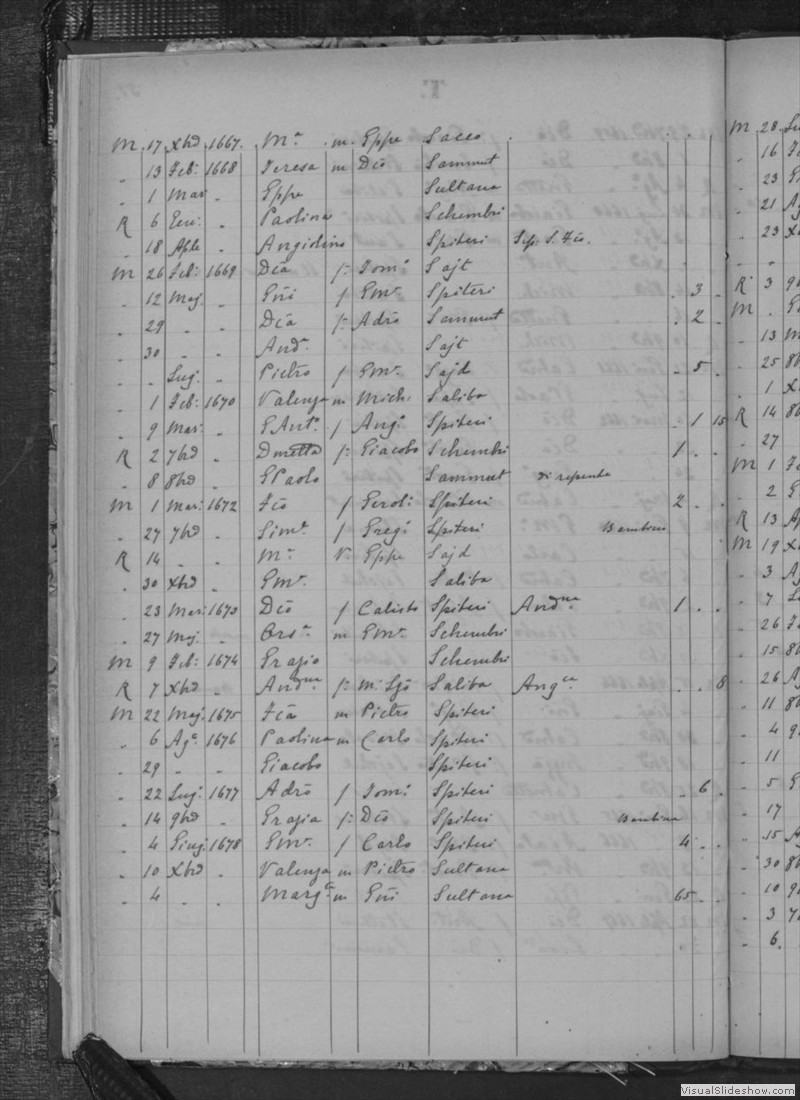 M 17 Xbd 1667. Mª m Eppe Sacco
" 13 Feb: 1668 Teresa m Dcõ Sammut
" 1 Mar " Eppe Sultana
R 6 " Paolina Schembri
" 18 Aple " Angiolino Spiteri Sep: S. Fco.
M 26 Feb: 1669 Dca f: Tomi Sajt
" 12 Maj. " Gñi f Gmr Spiteri . 3 .
" 29 " " Dca f: Adrõ Sammut . 2 .
" 30 " " Andr. Sajt
" " Lug. " Pietro f Gmr. Sajd . 5 .
" 1 Feb: 1670 Valenza m Mich: Saliba
" 9 Mar: " GAntº f Angº Spiteri . 1 15
R 2 7bd " f: Giacobo Schembri 1 . .
" 8 8bd " GPaolo Sammut di repente
M 1 Mar: 1672 Fcõ f Spiteri 2 . .
" 27 7bd " Simr. f Gregº Spiteri Bambino
R 14 " " Mª V. Eppe Sajd
" 30 Xbd " Gmr. Saliba
" 23 Mar: 1673 Dcõ f Calisto Spiteri Andna 1 . .
" 27 Maj. " Orsª m Gmr. Schembri
M 9 Feb: 1674 Grazio Schembri
R 7 Xbd " Andna f: Saliba Angca . . 8
M 22 Maj. 1675 Fca m Pietro Spiteri
" 6 Agº 1676 Paolina m Carlo Spiteri
" 29 " " Giacobo Spiteri
" 22 Lug. 1677 Adrõ f Tomi Spiteri . 6 .
" 14 9bd " Grazia f: Dcõ Spiteri Bambina
" 4 Giug. 1678 Gmr. f Carlo Spiteri 4 . .
" 10 Xbd " Valenza m Pietro Sultana
" 4 " " Margª m Gñi Sultana 65 . .
M 28
" 16
" 23
" 21
" 23
R 3
M
" 13
" 25
" 1
R 14
" 27
M 1
" 2
R 13
M 19
" 3
" 7
" 26
" 15
" 26
" 11
" 4
" 11
" 5
" 17
" 15
" 30
" 10
" 3
" 6.
VisualSlideshow.com